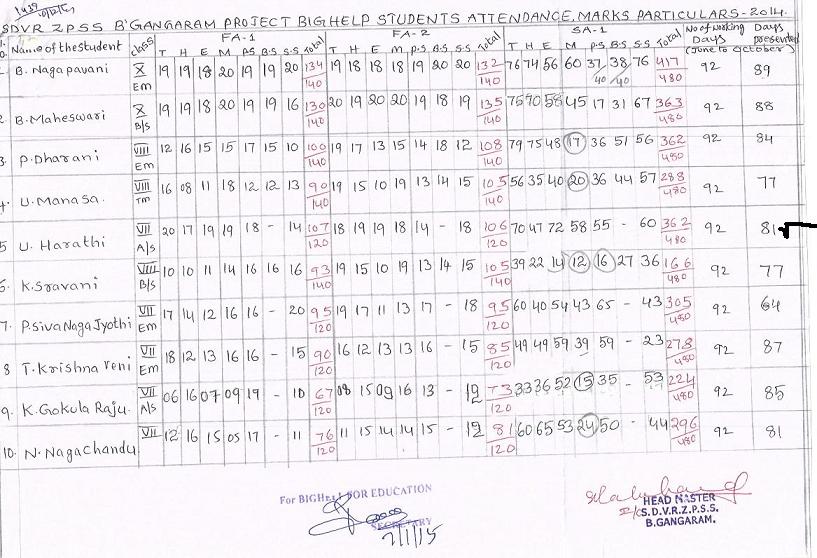 SDVR ZPSS B'GANGARAM PROJECT BIGHELP STUDENTS ATTENDANCE, MARKS PARTICULARS - 2014.
FA-1 FA-2 SA-1
Name of the student class T H E M P.S B.S S.S Total T H E M P.S B.S S.S Total T H E M PS B.S S.S Total No of working Days (June to October) Days presented
B. Nagapavani X Em 19 19 18 20 19 19 20 134/140 19 18 18 18 19 20 20 132/140 76 74 56 60 37/40 38/40 76 417/480 92 89
2 B. Maheswari X B/s 19 19 18 20 19 19 16 130/140 20 19 20 20 19 18 19 135/140 75 70 58 45 17 31 67 363/480 92 88
3 P. Dharani VIII Em 12 16 15 15 17 15 10 100/140 19 17 13 15 14 18 12 108/140 79 75 48 17 36 51 56 362/480 92 84
4. U. Manasa. VIII Tm 16 08 11 18 12 12 13 90/140 19 15 10 19 13 14 15 105/140 56 35 40 20 36 44 57 288/480 92 77
5 U. Harathi VII A/s 20 17 19 19 18 - 14 107/120 18 19 19 18 14 - 18 106/120 70 47 72 58 55 - 60 362/480 92 81
6. K. Sravani VIII B/s 10 10 11 14 16 16 16 93/140 19 15 10 19 13 14 15 105/140 39 22 14 12 16 27 36 166/480 92 77
7. P. Siva Naga Jyothi VII Em 17 14 12 16 16 - 20 95/120 19 17 11 13 17 - 18 95/120 60 40 54 43 65 - 43 305/480 92 64
8 T. Krishna Veni VII Em 18 12 13 16 16 - 15 90/120 16 12 13 13 16 - 15 85/120 49 49 59 39 59 - 23 278/480 92 87
9. K. Gokula Raju. VII A/s 06 16 07 09 19 - 10 67/120 08 15 09 16 13 - 12 73/120 33 36 52 15 35 - 53 224/480 92 85
10. N. Nagachandu VII 12 16 15 05 17 - 11 76/120 11 15 14 14 15 - 12 81/120 60 65 53 24 50 - 44 296/480 92 81
For BIGHELP FOR EDUCATION
SECRETARY
2/1/15
HEAD MASTER
S.D.V.R.Z.P.S.S.
B.GANGARAM.